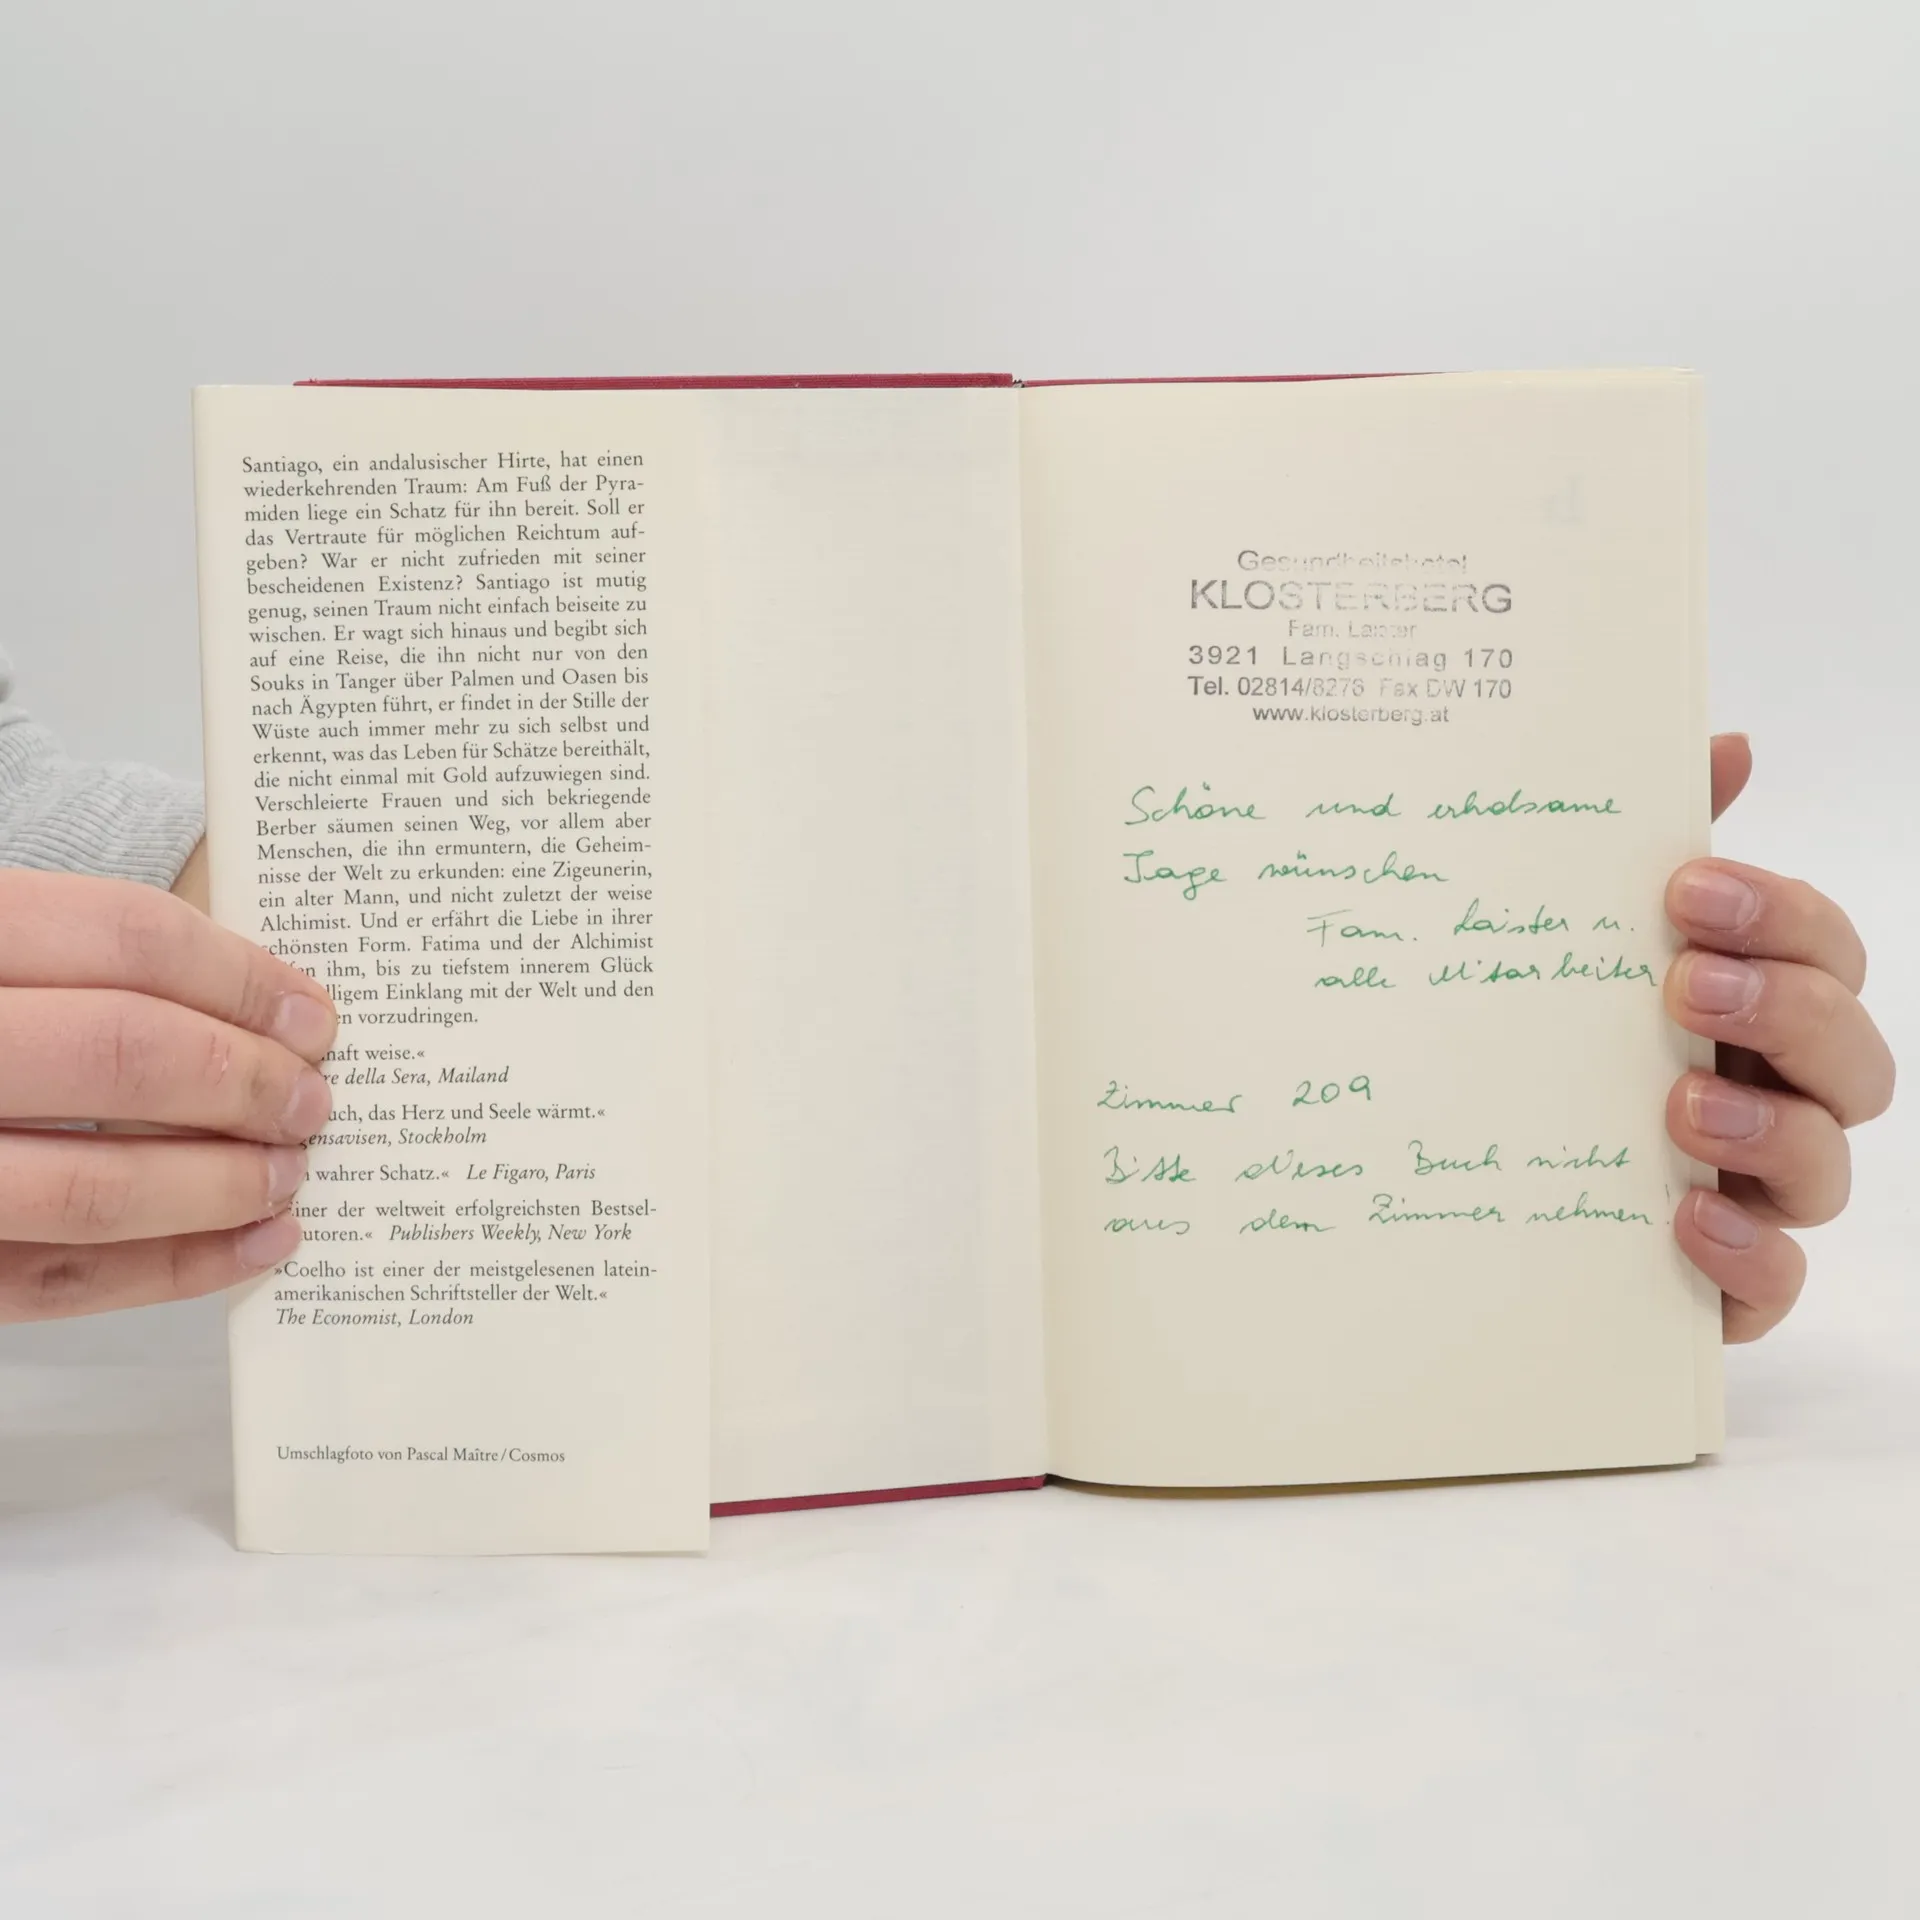 Santiago, ein andalusischer Hirte, hat einen
wiederkehrenden Traum: Am Fuß der Pyra-
miden liege ein Schatz für ihn bereit. Soll er
das Vertraute für möglichen Reichtum auf-
geben? War er nicht zufrieden mit seiner
bescheidenen Existenz? Santiago ist mutig
genug, seinen Traum nicht einfach beiseite zu
wischen. Er wagt sich hinaus und begibt sich
auf eine Reise, die ihn nicht nur von den
Souks in Tanger über Palmen und Oasen bis
nach Ägypten führt, er findet in der Stille der
Wüste auch immer mehr zu sich selbst und
erkennt, was das Leben für Schätze bereithält,
die nicht einmal mit Gold aufzuwiegen sind.
Verschleierte Frauen und sich bekriegende
Berber säumen seinen Weg, vor allem aber
Menschen, die ihn ermuntern, die Geheim-
nisse der Welt zu erkunden: eine Zigeunerin,
ein alter Mann, und nicht zuletzt der weise
Alchimist. Und er erfährt die Liebe in ihrer
schönsten Form. Fatima und der Alchimist
ihm, bis zu tiefstem innerem Glück
Einklang mit der Welt und den
vorzudringen.
weise.«
della Sera, Mailand
das Herz und Seele wärmt.«
Stockholm
wahrer Schatz.« Le Figaro, Paris
einer der weltweit erfolgreichsten Bestsel-
Publishers Weekly, New York
»Coelho ist einer der meistgelesenen latein-
amerikanischen Schriftsteller der Welt.«
The Economist, London
Umschlagfoto von Pascal Maître/Cosmos
Gesundheitshotel
KLOSTERBERG
Fam. Laister
3921 Langschlag 170
Tel. 02814/8276 Fax DW 170
www.klosterberg.at
Schöne und erholsame
Tage wünschen
Fam. Laister u.
alle Mitarbeiter
Zimmer 209
Bitte dieses Buch nicht
aus dem Zimmer nehmen!